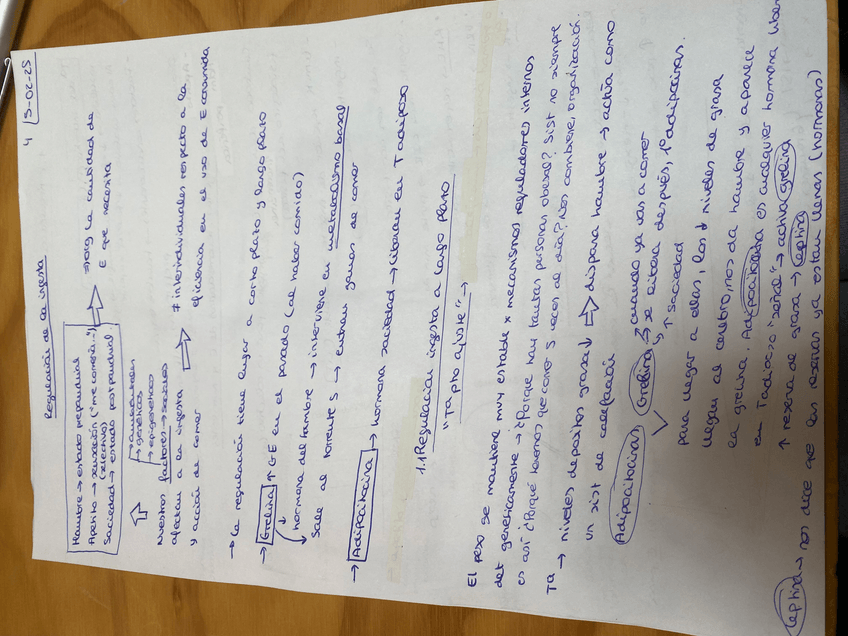 4 13-02-25
Regulación de la ingesta
Hambre → estado preprandial
Apetito → sensación ("me comería...")
(selectivo)
Saciedad → estado postprandial
⇒ org la cantidad de
E que necesita
→ ambientales
→ genéticos
→ epigenéticos
Nuestros factores → sociales
afectan a la ingesta
y acción de comer
⇒ ≠ interindividuales respecto a la
eficiencia en el uso de E consumida
→ La regulación tiene lugar a corto plazo y largo plazo
→ Grelina ↑ GE en el pasado (al haber comido)
↳ hormona del hambre → interviene en metabolismo basal
Sale al torrente S → entran ganas de comer
→ Adipocitocina → hormona saciedad → liberan en T adiposo
1.1 Regulación ingesta a largo plazo
"Ta pto ajuste" →
El peso se mantiene muy estable x mecanismos reguladores internos
det genéticamente → ¿Porque hay tantas personas obesas? Sist no siempre
es así ¿Porqué tenemos que comer 5 veces al día? Nos conviene, organización.
Ta → niveles depósitos grasa ↓ ⇒ dispara hambre → actúa como
un sist de calefacción
Adipocitocinas, Grelina → cuando ya vas a comer
↳ se altera después, 1º adipocinas.
↳ ↑ saciedad
para llegar a ellas, los ↓ niveles de grasa
llegan al cerebro, nos da hambre y aparece
la grelina. Adipocitocina es cualquier hormona liber
en T adiposo "señal" → activa grelina
↑ reserva de grasa → leptina
leptina → nos dice que las reservas ya están llenas (hormonas)